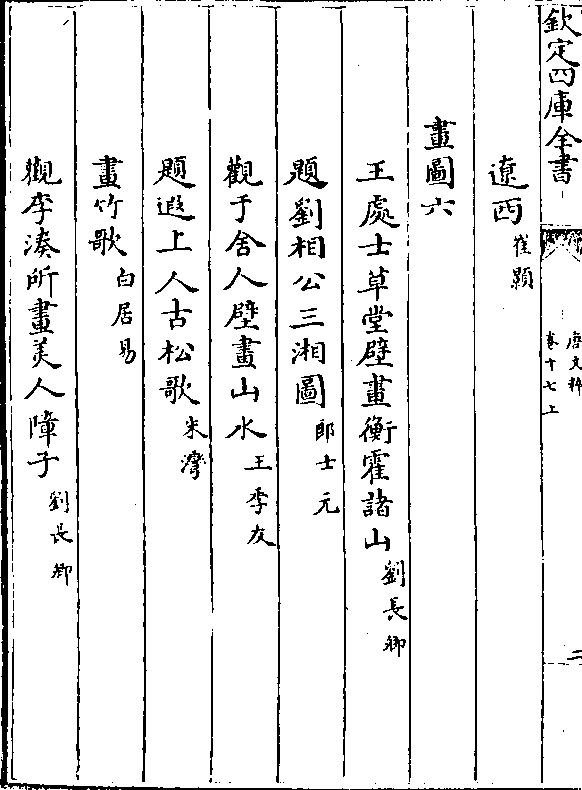 欽定四庫全書
唐文粹
卷十七上
二
遼西 崔顥
畫圖六
王處士草堂壁畫衡霍諸山 劉長卿
題劉相公三湘圖 郎士元
觀于舍人壁畫山水 王季友
題遐上人古松歌 朱灣
畫竹歌 白居易
觀李湊所畫美人障子 劉長卿